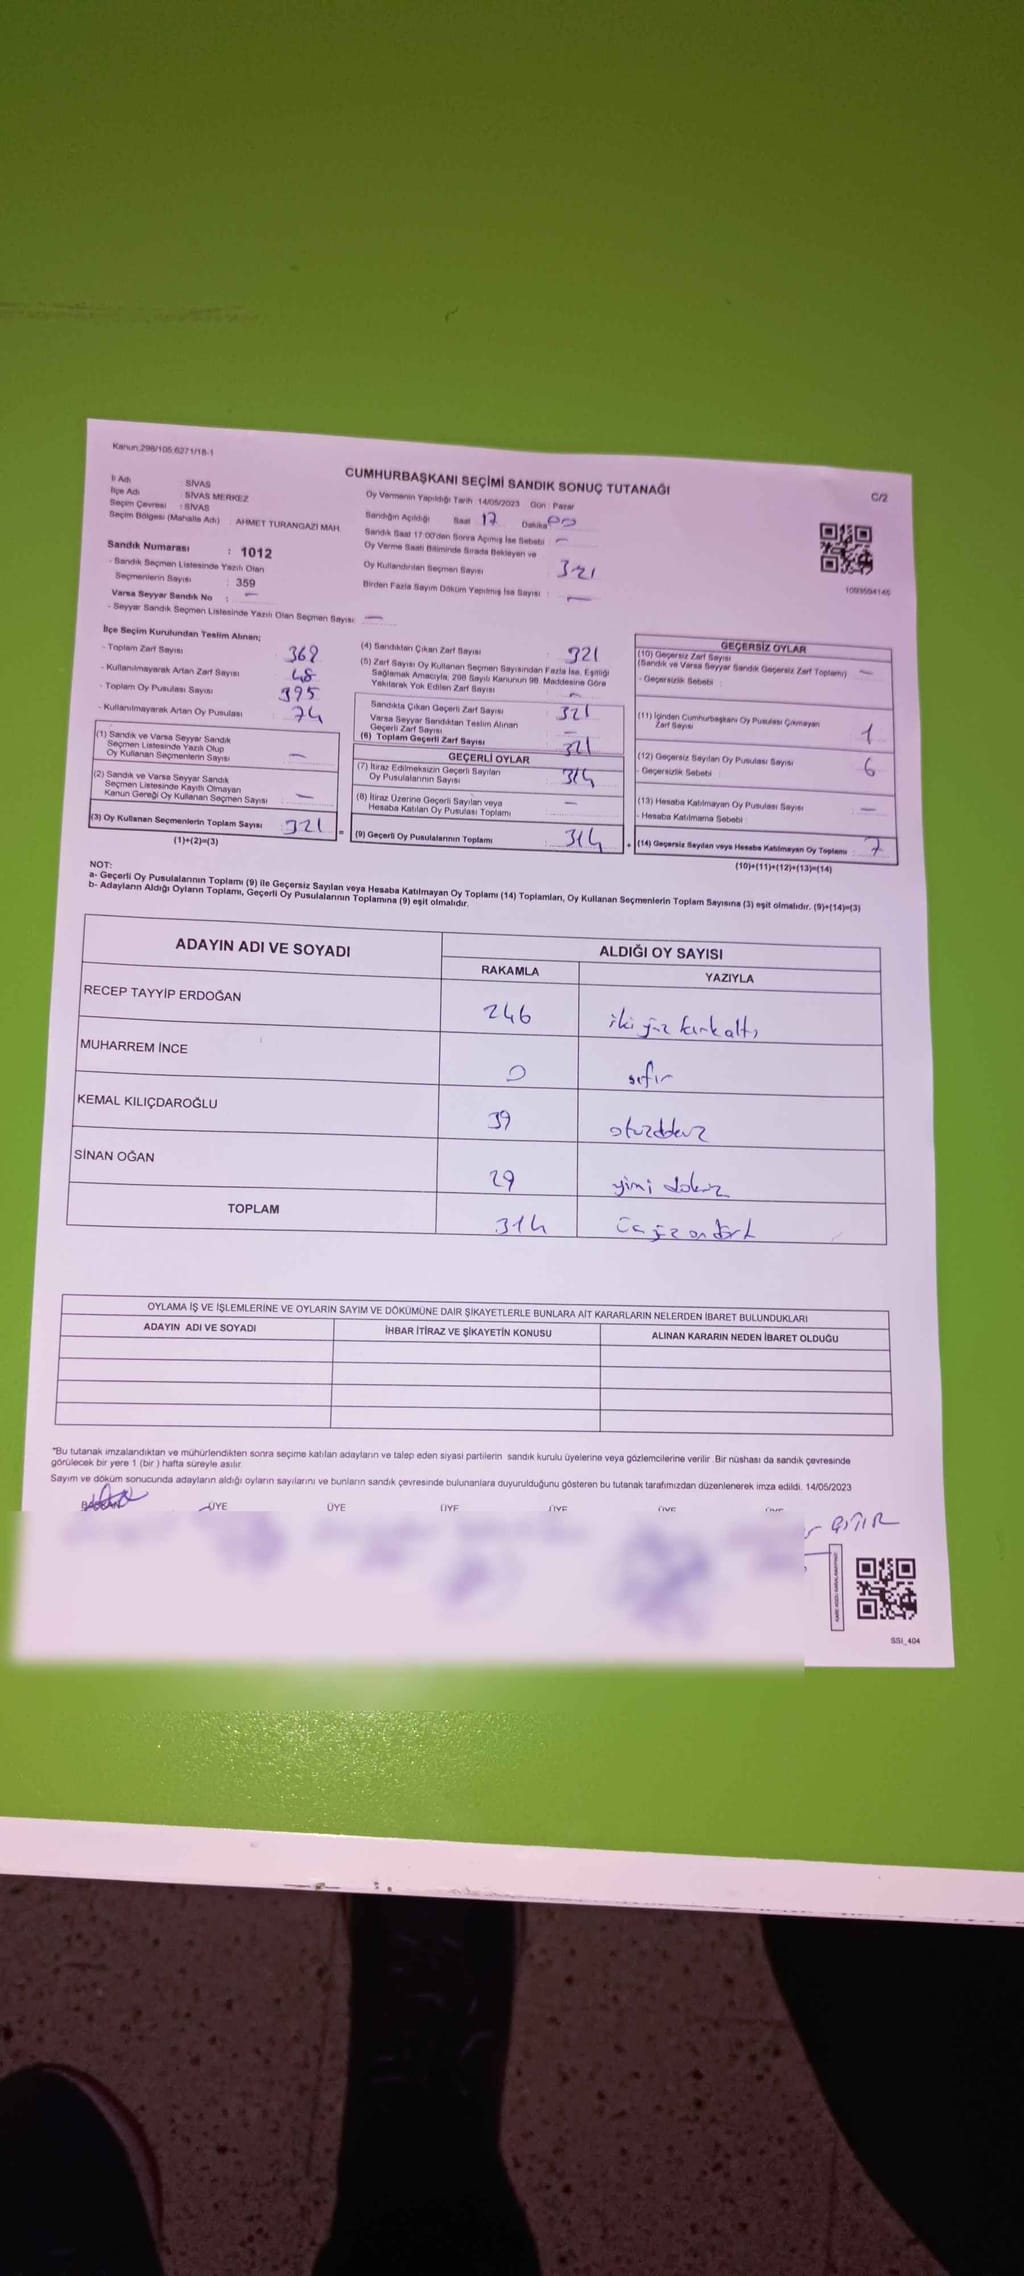 Kanun:298/105;6271/18-1
CUMHURBAŞKANI SEÇİMİ SANDIK SONUÇ TUTANAĞI
C/2
İl Adı : SİVAS
İlçe Adı : SİVAS MERKEZ
Seçim Çevresi : SİVAS
Seçim Bölgesi (Mahalle Adı) : AHMET TURANGAZİ MAH.
Oy Vermenin Yapıldığı Tarih: 14/05/2023 Gün : Pazar
Sandığın Açıldığı Saat 17 Dakika 00
Sandık Saat 17:00'den Sonra Açılmış İse Sebebi : —
Oy Verme Saati Bitiminde Sırada Bekleyen ve
Oy Kullandırılan Seçmen Sayısı : 321
Birden Fazla Sayım Döküm Yapılmış İse Sayısı : —
1093504145
Sandık Numarası : 1012
- Sandık Seçmen Listesinde Yazılı Olan
Seçmenlerin Sayısı : 359
Varsa Seyyar Sandık No : —
- Seyyar Sandık Seçmen Listesinde Yazılı Olan Seçmen Sayısı : —
İlçe Seçim Kurulundan Teslim Alınan;
- Toplam Zarf Sayısı : 369
- Kullanılmayarak Artan Zarf Sayısı : 48
- Toplam Oy Pusulası Sayısı : 395
- Kullanılmayarak Artan Oy Pusulası : 74
(1) Sandık ve Varsa Seyyar Sandık
Seçmen Listesinde Yazılı Olup
Oy Kullanan Seçmenlerin Sayısı : —
(2) Sandık ve Varsa Seyyar Sandık
Seçmen Listesinde Kayıtlı Olmayan
Kanun Gereği Oy Kullanan Seçmen Sayısı : —
(3) Oy Kullanan Seçmenlerin Toplam Sayısı : 321 =
(1)+(2)=(3)
(4) Sandıktan Çıkan Zarf Sayısı : 321
(5) Zarf Sayısı Oy Kullanan Seçmen Sayısından Fazla İse, Eşitliği
Sağlamak Amacıyla, 298 Sayılı Kanunun 98. Maddesine Göre
Yakılarak Yok Edilen Zarf Sayısı : —
Sandıkta Çıkan Geçerli Zarf Sayısı : 321
Varsa Seyyar Sandıktan Teslim Alınan
Geçerli Zarf Sayısı : —
(6) Toplam Geçerli Zarf Sayısı : 321
GEÇERLİ OYLAR
(7) İtiraz Edilmeksizin Geçerli Sayılan
Oy Pusulalarının Sayısı : 314
(8) İtiraz Üzerine Geçerli Sayılan veya
Hesaba Katılan Oy Pusulası Toplamı : —
(9) Geçerli Oy Pusulalarının Toplamı : 314 +
GEÇERSİZ OYLAR
(10) Geçersiz Zarf Sayısı
(Sandık ve Varsa Seyyar Sandık Geçersiz Zarf Toplamı) : —
- Geçersizlik Sebebi :
(11) İçinden Cumhurbaşkanı Oy Pusulası Çıkmayan
Zarf Sayısı : 1
(12) Geçersiz Sayılan Oy Pusulası Sayısı : 6
- Geçersizlik Sebebi :
(13) Hesaba Katılmayan Oy Pusulası Sayısı : —
- Hesaba Katılmama Sebebi :
(14) Geçersiz Sayılan veya Hesaba Katılmayan Oy Toplamı : 7
(10)+(11)+(12)+(13)=(14)
NOT:
a- Geçerli Oy Pusulalarının Toplamı (9) ile Geçersiz Sayılan veya Hesaba Katılmayan Oy Toplamı (14) Toplamları, Oy Kullanan Seçmenlerin Toplam Sayısına (3) eşit olmalıdır. (9)+(14)=(3)
b- Adayların Aldığı Oyların Toplamı, Geçerli Oy Pusulalarının Toplamına (9) eşit olmalıdır.
ADAYIN ADI VE SOYADI ALDIĞI OY SAYISI
RAKAMLA YAZIYLA
RECEP TAYYİP ERDOĞAN 246 iki yüz kırk altı
MUHARREM İNCE 0 sıfır
KEMAL KILIÇDAROĞLU 39 otuzdokuz
SİNAN OĞAN 29 yirmi dokuz
TOPLAM 314 üç yüz on dört
OYLAMA İŞ VE İŞLEMLERİNE VE OYLARIN SAYIM VE DÖKÜMÜNE DAİR ŞİKAYETLERLE BUNLARA AİT KARARLARIN NELERDEN İBARET BULUNDUKLARI
ADAYIN ADI VE SOYADI İHBAR İTİRAZ VE ŞİKAYETİN KONUSU ALINAN KARARIN NEDEN İBARET OLDUĞU
"Bu tutanak imzalandıktan ve mühürlendikten sonra seçime katılan adayların ve talep eden siyasi partilerin sandık kurulu üyelerine veya gözlemcilerine verilir. Bir nüshası da sandık çevresinde
görülecek bir yere 1 (bir ) hafta süreyle asılır.
Sayım ve döküm sonucunda adayların aldığı oyların sayılarını ve bunların sandık çevresinde bulunanlara duyurulduğunu gösteren bu tutanak tarafımızdan düzenlenerek imza edildi. 14/05/2023
BAŞKAN ÜYE ÜYE ÜYE ÜYE ÜYE ÜYE
SSI_404